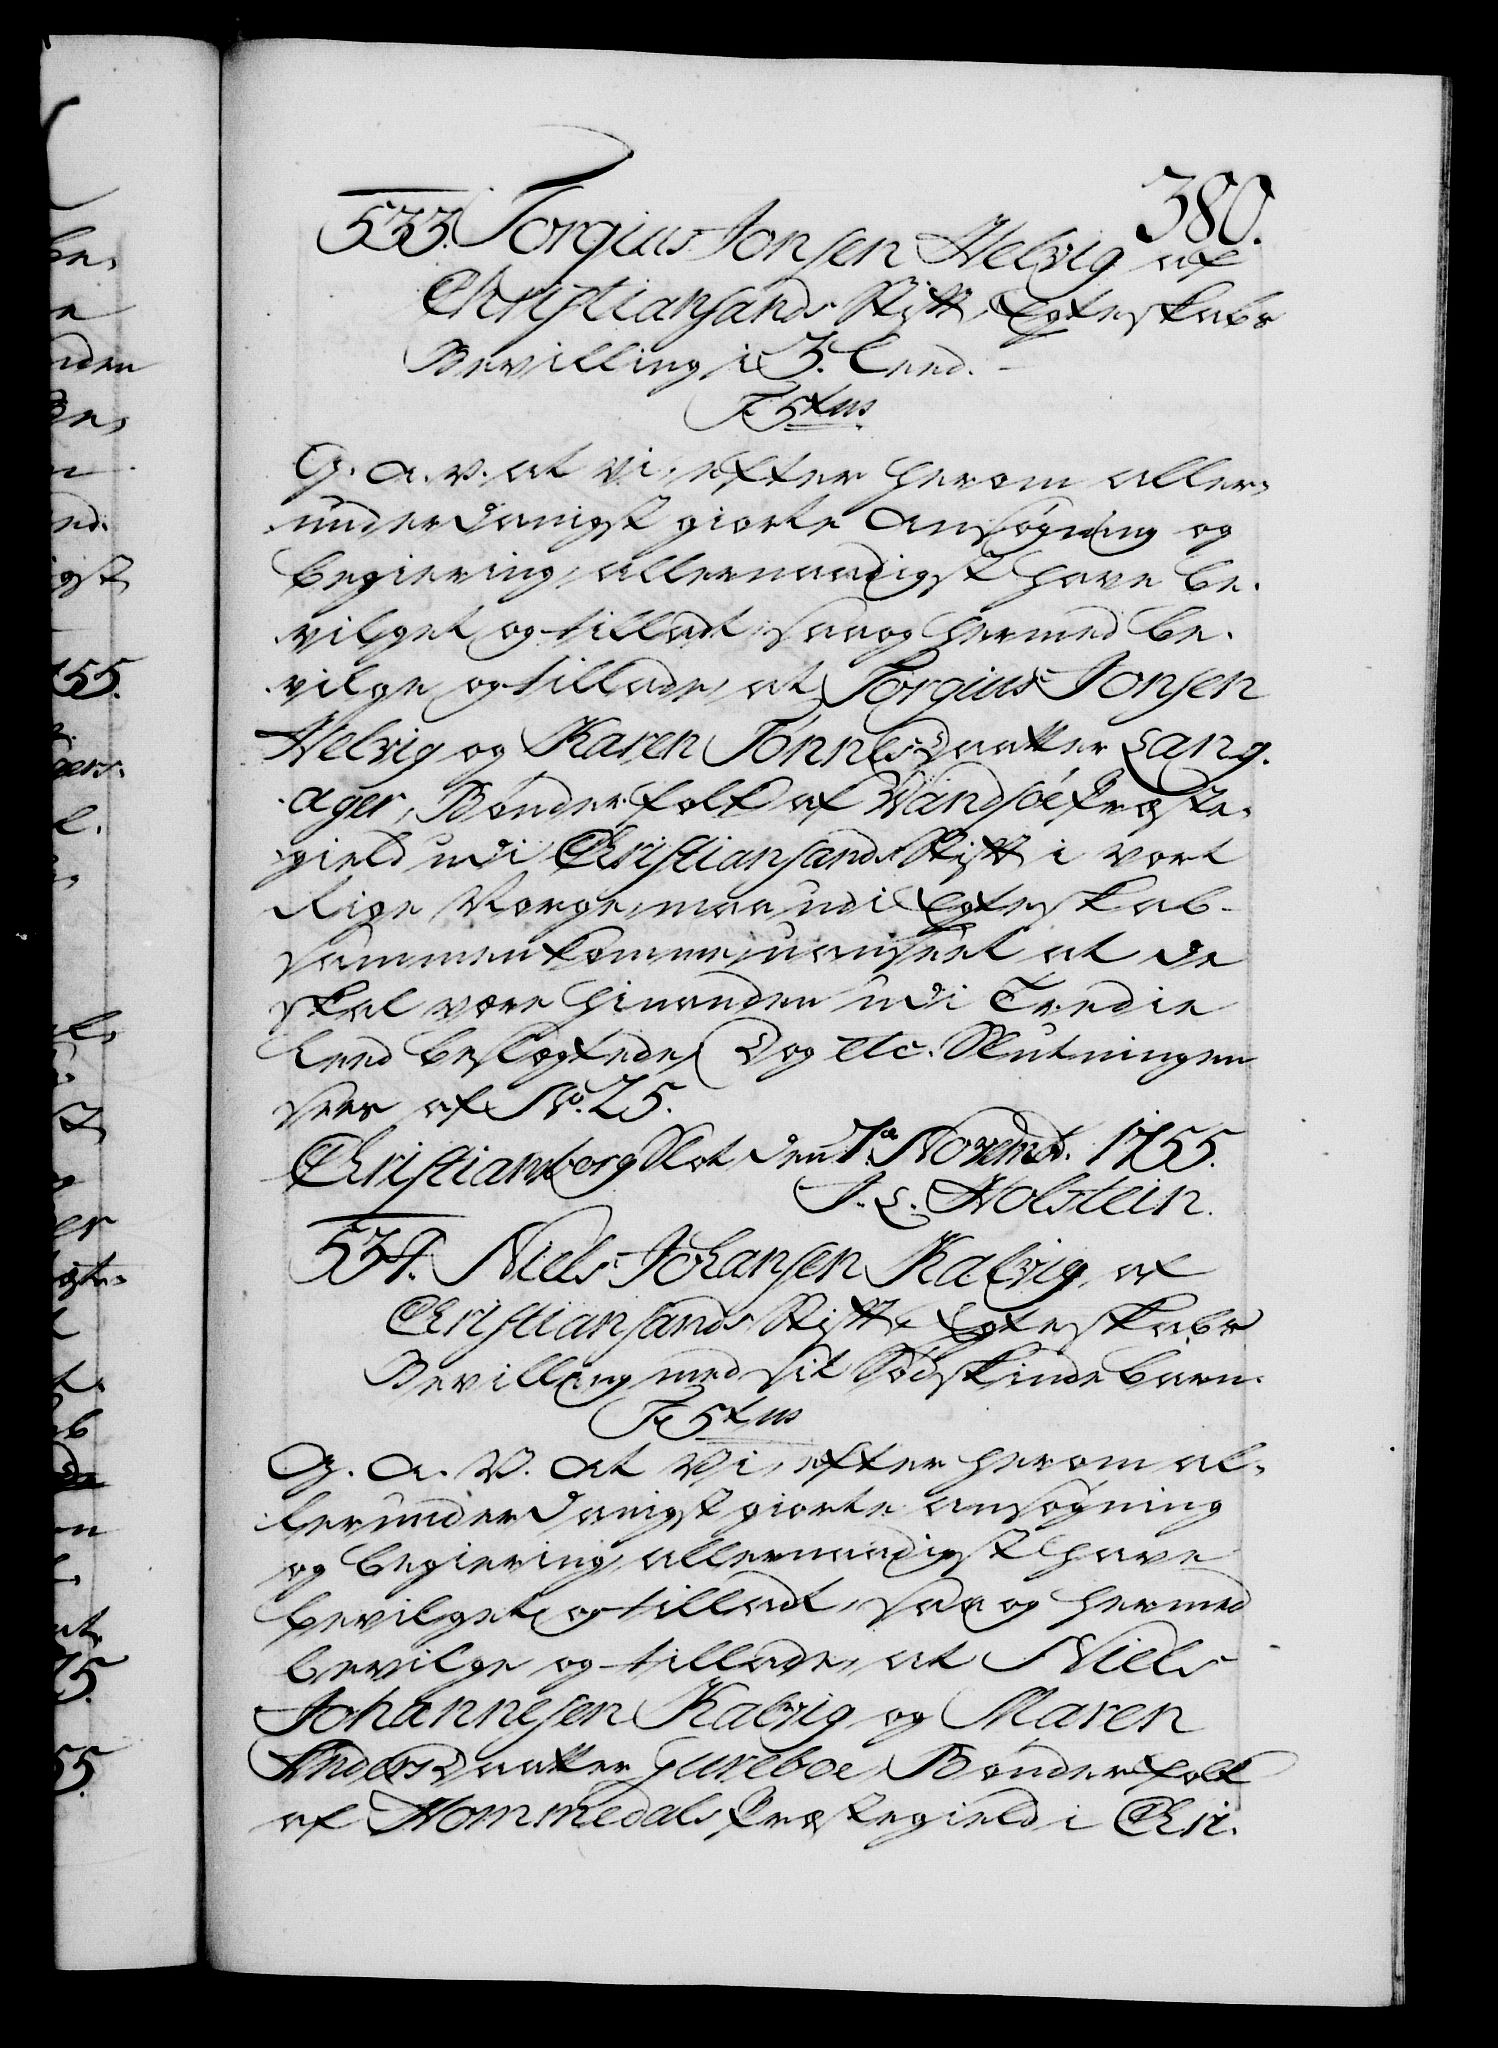 380.
533. Torgius Jonsen Helvig af
Christiansands Stift, Egteskabs
Bevilling i 3. Leed.
F 5tus
G. A. V. at Vi, efter herom aller-
underdanigst giorte Ansøgning og
begiering, allernaadigst have be-
vilget og tilladt, saa og hermed be-
vilge og tillade, at Torgius Jonsen
Helvig og Karen Tønnesdaatter Lang-
ager, Bønder folk af Vandsøe Præste-
gield udi Christiansands Stift i vort
Rige Norge, maa udi Egteskab
sammenkomme, uanseet at de
skal være hinanden udi Tredie
Leed beslægtede, Dog etc. Slutningen
sees af No. 25.
Christiansborg Slot den 7de Novembr. 1755.
J. L. Holstein.
534. Niels Johansen Kalvig, af
Christiansands Stift, Egteskabs
Bevilling med sit Sødskindebarn.
F 5tus
G. A. V. at Vi, efter herom al-
lerunderdanigst giorte ansøgning
og begiering, allernaadigst have
bevilget og tilladt, saa og hermed
bevilge og tillade, at Niels
Johannesen Kalvig og Maren
Andersdaatter Gureboe, Bønderfolk
af Hommedals Præstegield i Chri-